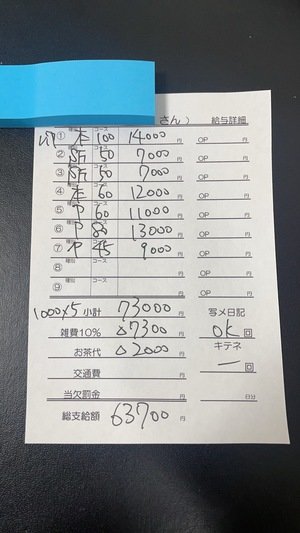 さん） 給与詳細
種別 コース
① 本 100 14000円 OP 円
② 新 50 7000円 OP 円
③ 新 50 7000円 OP 円
④ 本 60 12000円 OP 円
⑤ P 60 11000円 OP 円
⑥ P 80 13000円 OP 円
⑦ P 45 9000円 OP 円
⑧ 円 OP 円
⑨ 円 OP 円
1000×5 小計 73000円 写メ日記
雑費10% △7300円 OK 回
お茶代 △2000円 キテネ
交通費 円 一 回
当欠罰金 円 日分
総支給額 63700円